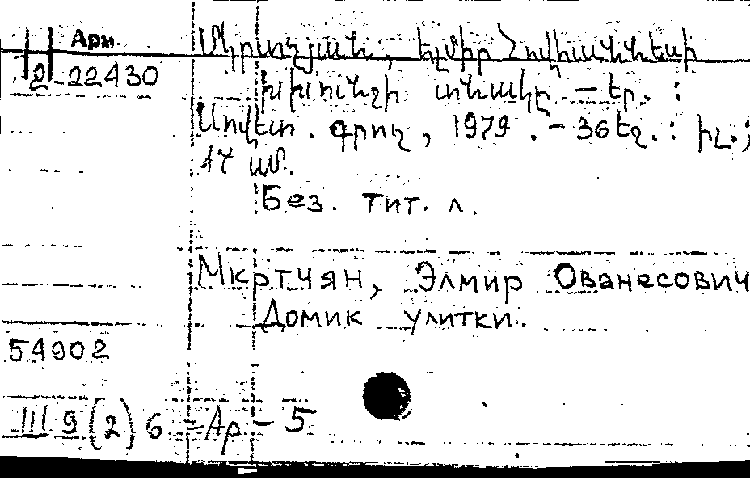 Арм
2 22430
Մկրտչյան, Էլմիր Հովհաննեսի
Խխունջի տնակը. – Եր. :
Սովետ. գրող, 1979. – 36 էջ. : իլ.;
17 սմ.
Без. тит. л.
Мкртчян, Элмир Ованесович
Домик улитки.
54902
III 9(2)6 – Ар – 5